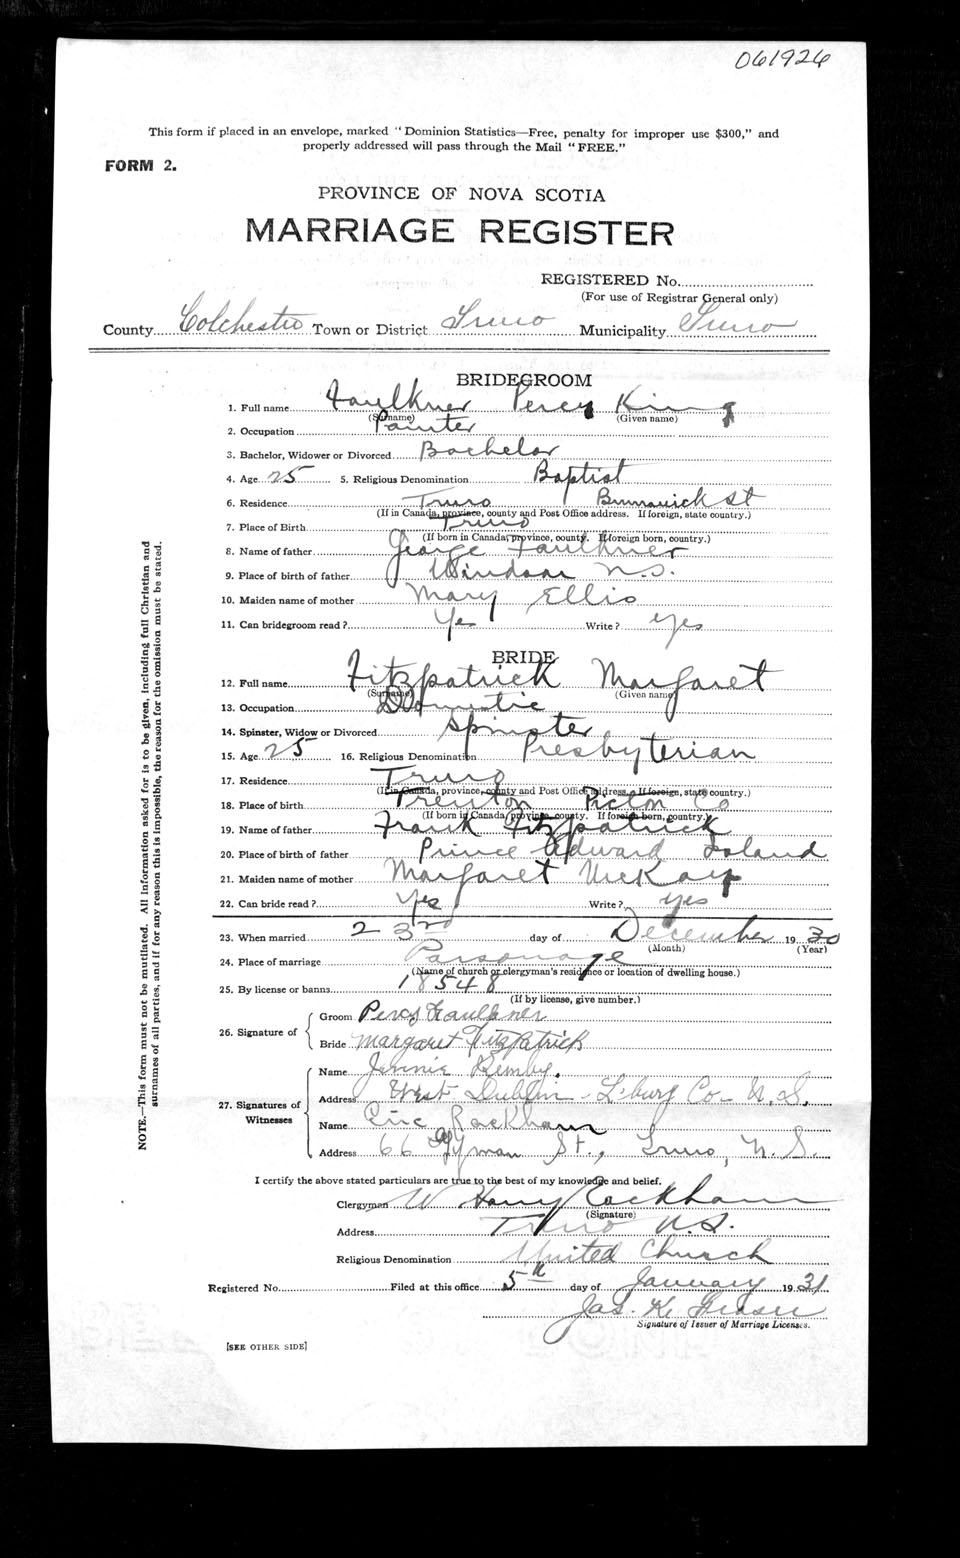 061926
This form if placed in an envelope, marked "Dominion Statistics—Free, penalty for improper use $300," and
properly addressed will pass through the Mail "FREE."
FORM 2.
PROVINCE OF NOVA SCOTIA
MARRIAGE REGISTER
REGISTERED No.
(For use of Registrar General only)
County Colchester Town or District Truro Municipality Truro
BRIDEGROOM
1. Full name Faulkner Percy King
(Surname) (Given name)
2. Occupation Painter
3. Bachelor, Widower or Divorced Bachelor
4. Age 25 5. Religious Denomination Baptist
6. Residence Truro Brunswick St
(If in Canada, province, county and Post Office address. If foreign, state country.)
7. Place of Birth Truro
(If born in Canada, province, county. If foreign born, country.)
8. Name of father George Faulkner
9. Place of birth of father Windsor N.S.
10. Maiden name of mother Mary Ellis
11. Can bridegroom read? Yes Write? yes
BRIDE
12. Full name Fitzpatrick Margaret
(Surname) (Given name)
13. Occupation Domestic
14. Spinster, Widow or Divorced Spinster
15. Age 25 16. Religious Denomination Presbyterian
17. Residence Truro
(If in Canada, province, county and Post Office address. If foreign, state country.)
18. Place of birth Trenton Pictou Co
(If born in Canada, province, county. If foreign born, country.)
19. Name of father Frank Fitzpatrick
20. Place of birth of father Prince Edward Island
21. Maiden name of mother Margaret McKay
22. Can bride read? Yes Write? yes
23. When married 23rd day of December 1930
(Month) (Year)
24. Place of marriage Parsonage
(Name of church or clergyman's residence or location of dwelling house.)
25. By license or banns 18548
(If by license, give number.)
26. Signature of
Groom Percy Faulkner
Bride Margaret Fitzpatrick
27. Signatures of Witnesses
Name Jennie
Address West Dublin - L'burg Co- N.S.
Name Eric Rackham
Address 66 Lyman St., Truro, N.S.
I certify the above stated particulars are true to the best of my knowledge and belief.
Clergyman W Harry Rackham
(Signature)
Address Truro N.S.
Religious Denomination United Church
Registered No. Filed at this office 5th day of January 1931
Jas. K. Fraser
Signature of Issuer of Marriage Licenses.
[SEE OTHER SIDE]
NOTE.—This form must not be mutilated. All information asked for is to be given, including full Christian and
surnames of all parties, and if for any reason this is impossible, the reason for the omission must be stated.